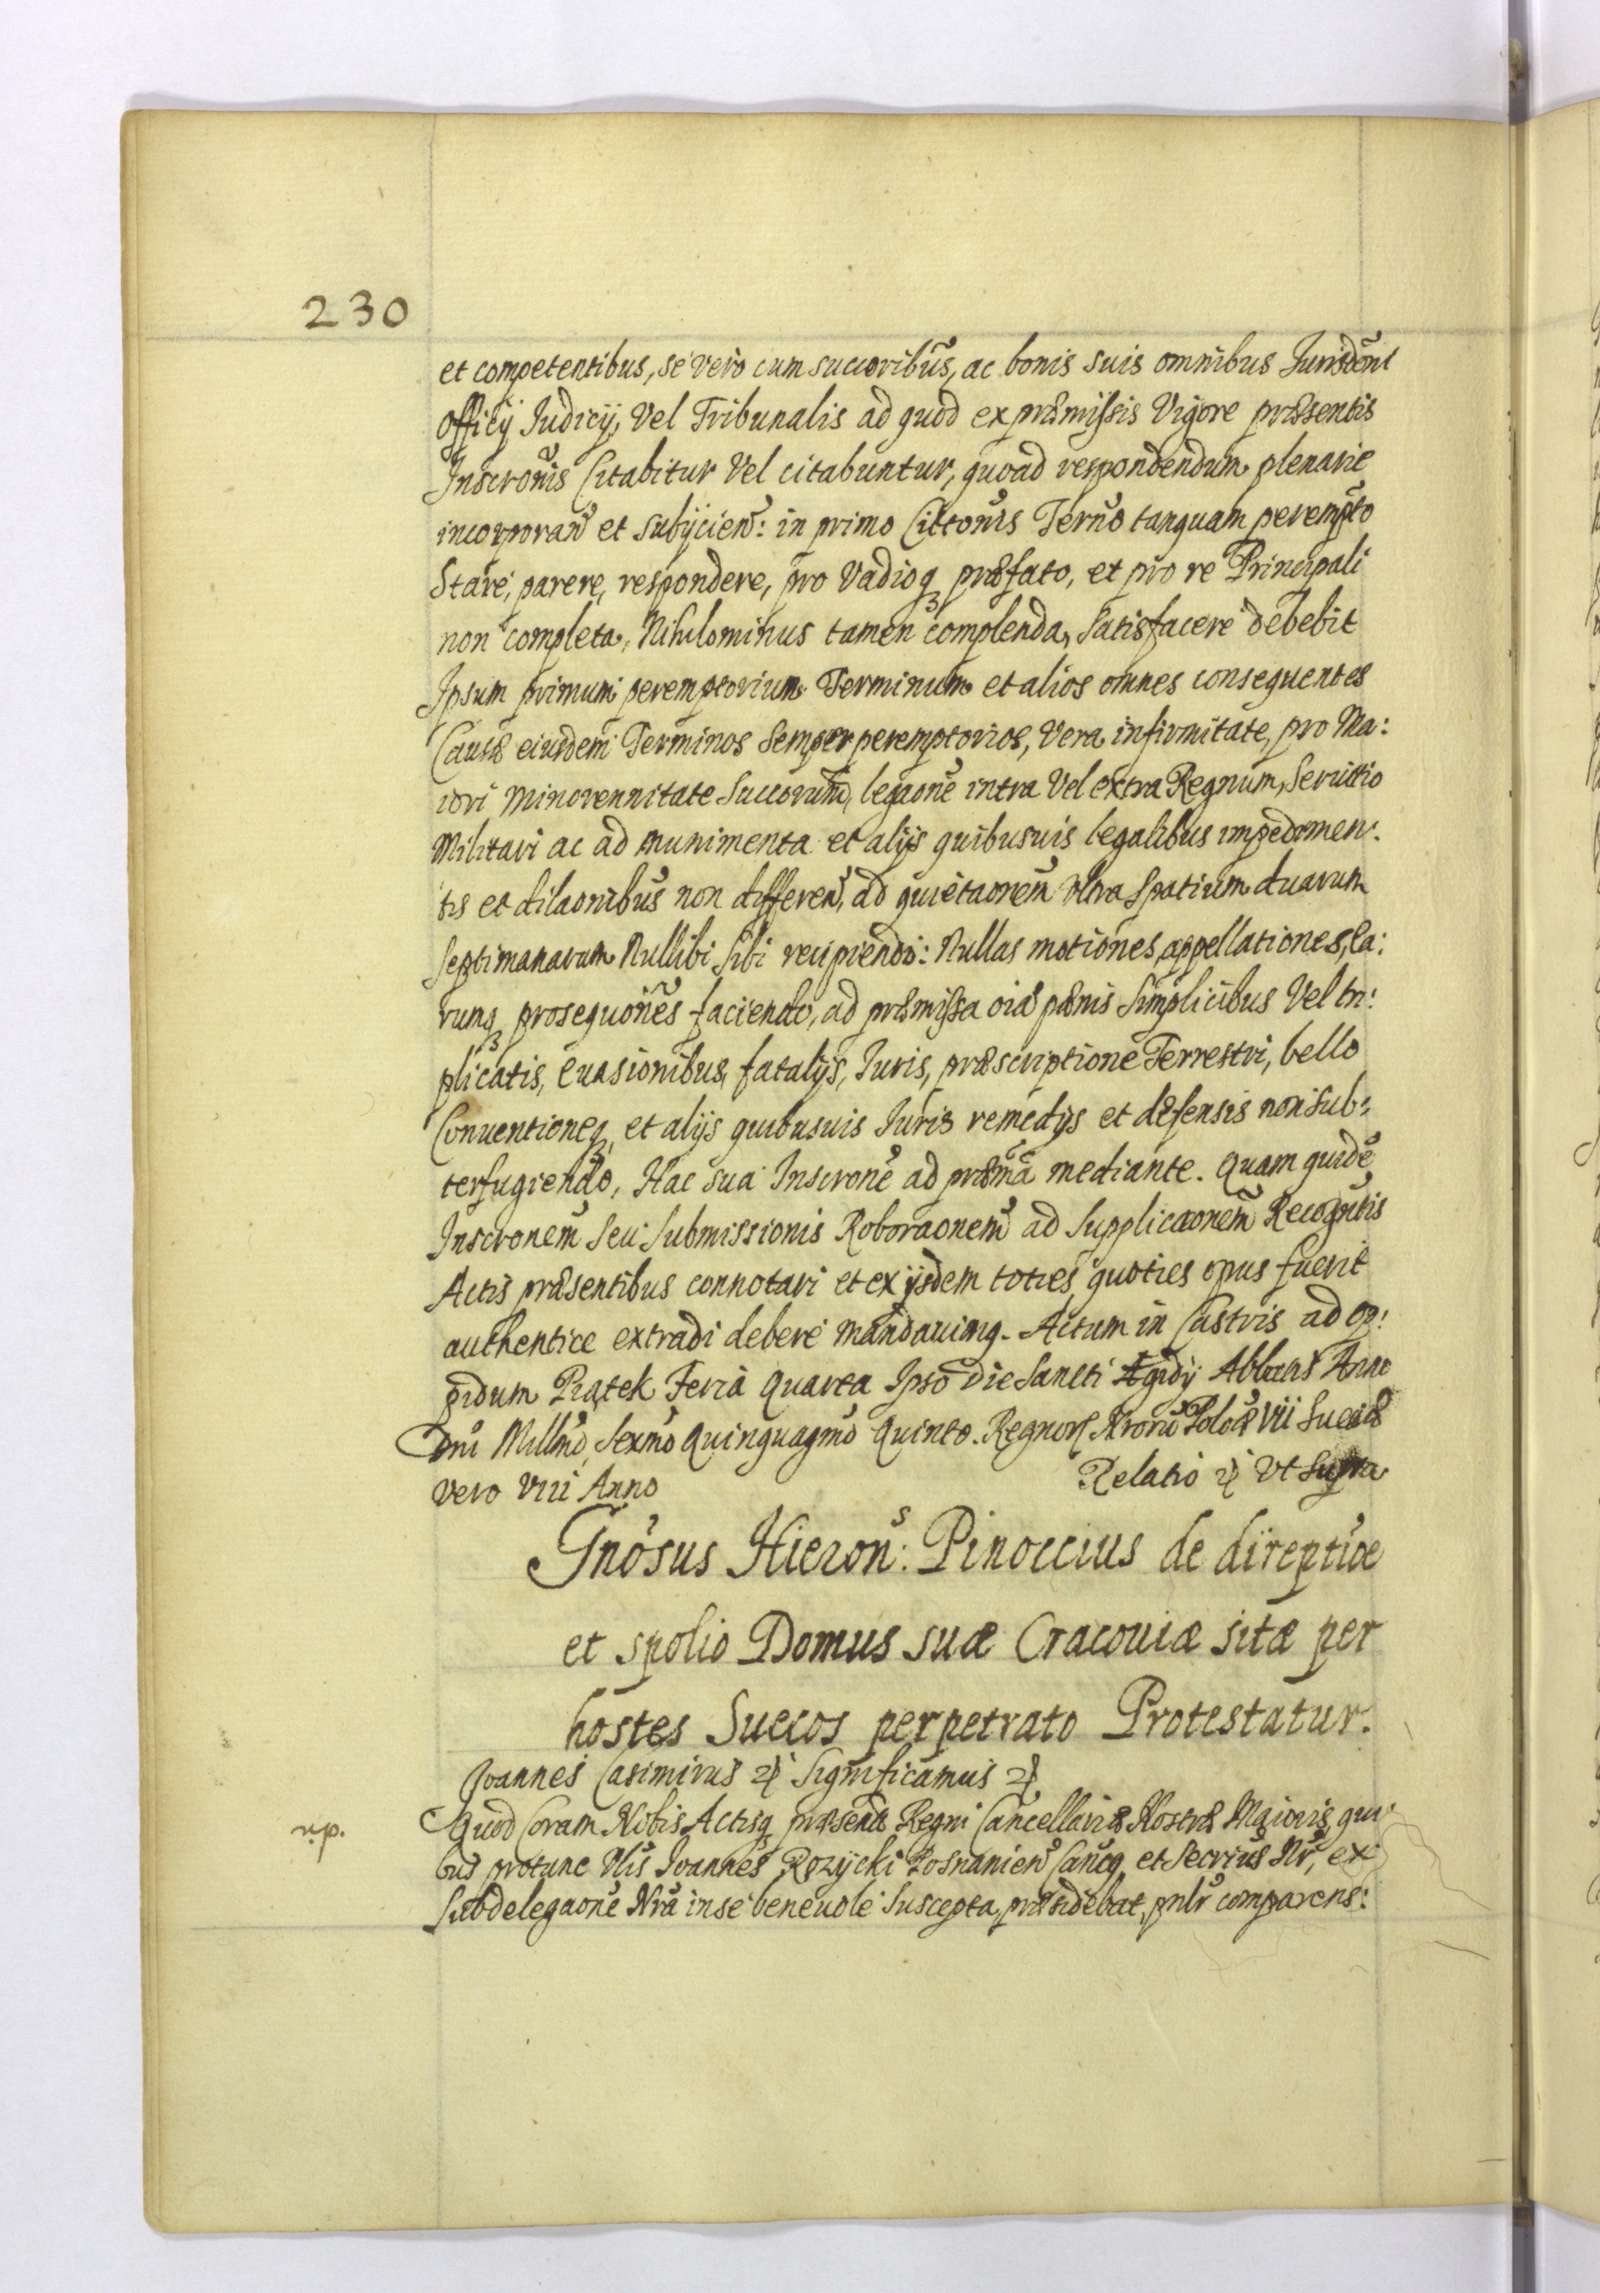 230
et competentibus, se vero cum succoribus, ac bonis suis omnibus Jurisdoni
Officij Iudicij, Vel Tribunalis ad quod ex præmissis Vigore præsentis
Inscronis Citabitur Vel citabuntur, quoad respondendum plenarie
incorporan et subijcien: in primo Cittonis Terno tanquam perempto
Stare, parere, respondere, pro Vadioq præfato, et pro re Principali
non completa, Nihilominus tamen complenda, Satisfacere debebit
Ipsum primum peremptorium Terminum et alios omnes consequentes
Causæ eiusdem Terminos semper peremptorios, Vera infirmitate, pro Ma:
iori Minorennitate Succorum, legaone intra Vel extra Regnum, Seruitio
Militari ac ad munimenta et alijs quibusuis legalibus impedimen:
tis et dilaonibus non differen, ad quietaonem ultra spatium duarum
Septimanarum Nullibi Sibi recipiendo: Nullas motiones, appellationes, Ea:
rumq prosequones faciendo, ad præmissa oia pænis Simplicibus Vel tri:
plicatis, Euasionibus, fatalijs, Iuris, præscriptione Terrestri, bello
Conuentioneq, et alijs quibusuis Iuris remedijs et defensis non sub:
terfugiendo, Hac sua Inscrone ad præma mediante. Quam quide
Inscronem seu Submissionis Roboraonem ad Supplicaonem Recogntis
Actis præsentibus connotari et ex ijsdem toties, quoties opus fuerit
authentice extradi debere mandauimq. Actum in Castris ad Op:
pidum Piątek Feria Quarta Ipso die Sancti Ægidij Abbatis Anno
Dni Millmo Sexmo Quinquagmo Quinto. Regnor Nroru Polo VII Sueciæ
vero VIII Anno Relatio Vt supra
Gnosus Hieron: Pinoccius de direptioe
et spolio Domus suæ Cracouiæ sitæ per
hostes Suecos perpetrato Protestatur.
Joannes Casimirus Significamus
Quod Coram Nobis Actisq præsen Regni Cancellariæ Nostræ Maioris, qui:
bus protunc Vlis Joannes Rozycki Posnanien Cancq et Secrius Nr, ex
Subdelegaone Nra in se beneuole Suscepta, præsidebat, pnlr comparens: